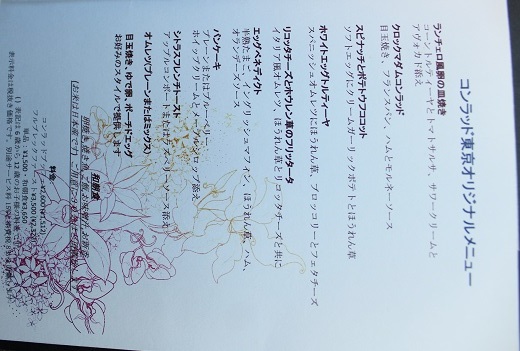 コンラッド東京オリジナルメニュー
ランチェロ風卵の皿焼き
コーントルティーヤとトマトサルサ、サワークリームと
アヴォカド添え
クロックマダムコンラッド
目玉焼き、フランスパン、ハムとモルネーソース
スピナッチとポテトウフココット
ソフトエッグにクリームガーリックポテトとほうれん草
ホワイトエッグトルティーヤ
スパニッシュオムレツにほうれん草、ブロッコリーとフェタチーズ
リコッタチーズとホウレン草のフリッタータ
イタリア風オムレツ、ほうれん草とリコッタチーズと共に
エッグベネディクト
半熟たまご、イングリッシュマフィン、ほうれん草、ハム、
オランデーズソース
パンケーキ
プレーンまたはブルーベリー、
ホイップクリームとメープルシロップ添え
シトラスフレンチトースト
アップルコンポートまたはラズベリーソース添え
オムレツ(プレーンまたはミックス)
目玉焼き、ゆで卵、ポーチドエッグ
お好みのスタイルで提供します
和朝食
(お米は日本産です)
料金